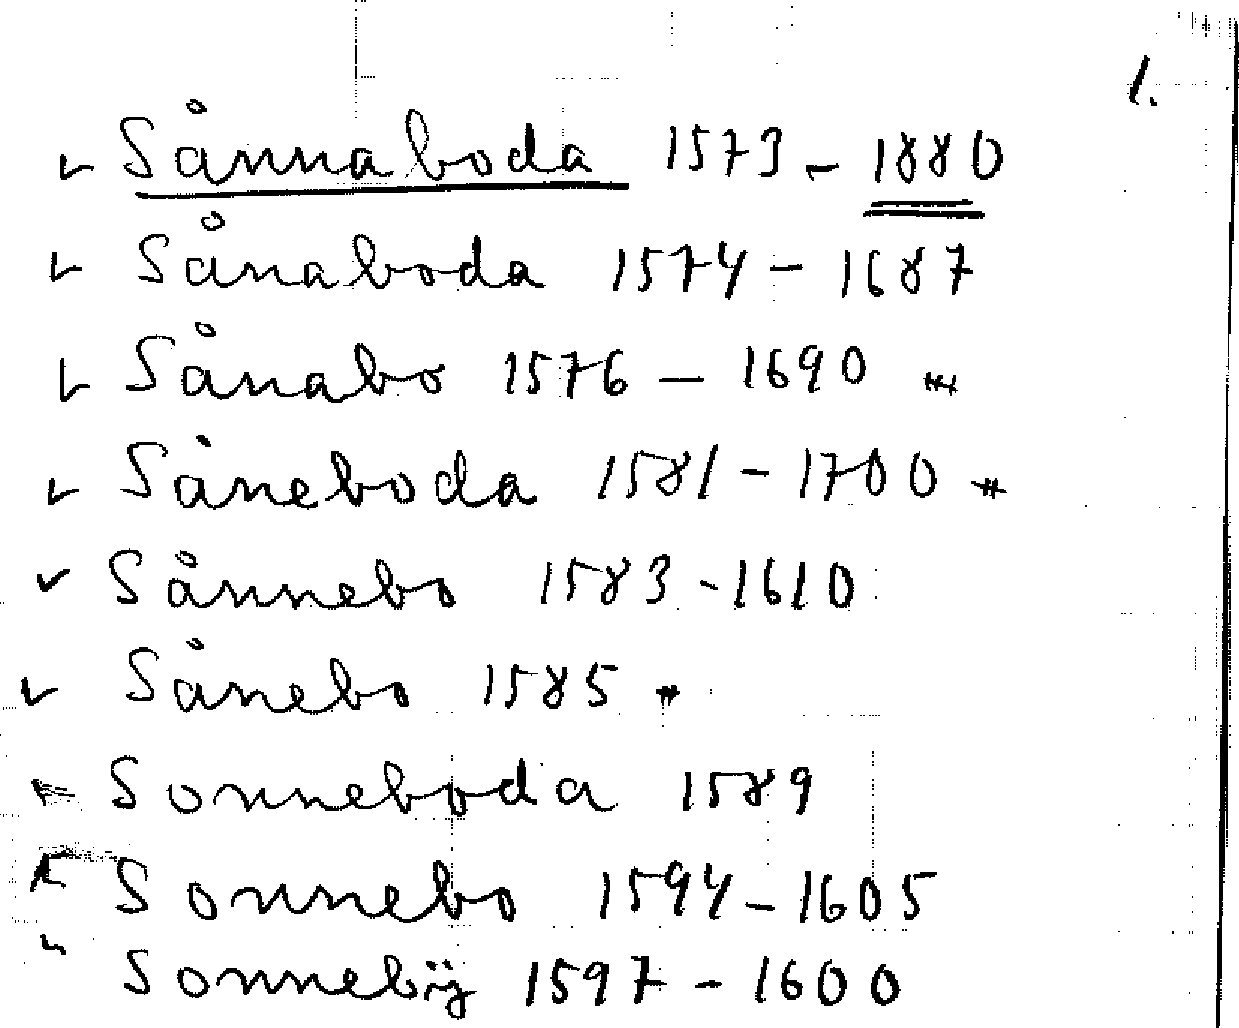 1.
Sånnaboda 1573 - 1880
Sånaboda 1574 - 1687
Sånabo 1576 - 1690
Såneboda 1581 - 1700
Sånnebo 1583 - 1610
Sånebo 1585
Sonneboda 1589
Sonnebo 1594 - 1605
Sonnebÿ 1597 - 1600